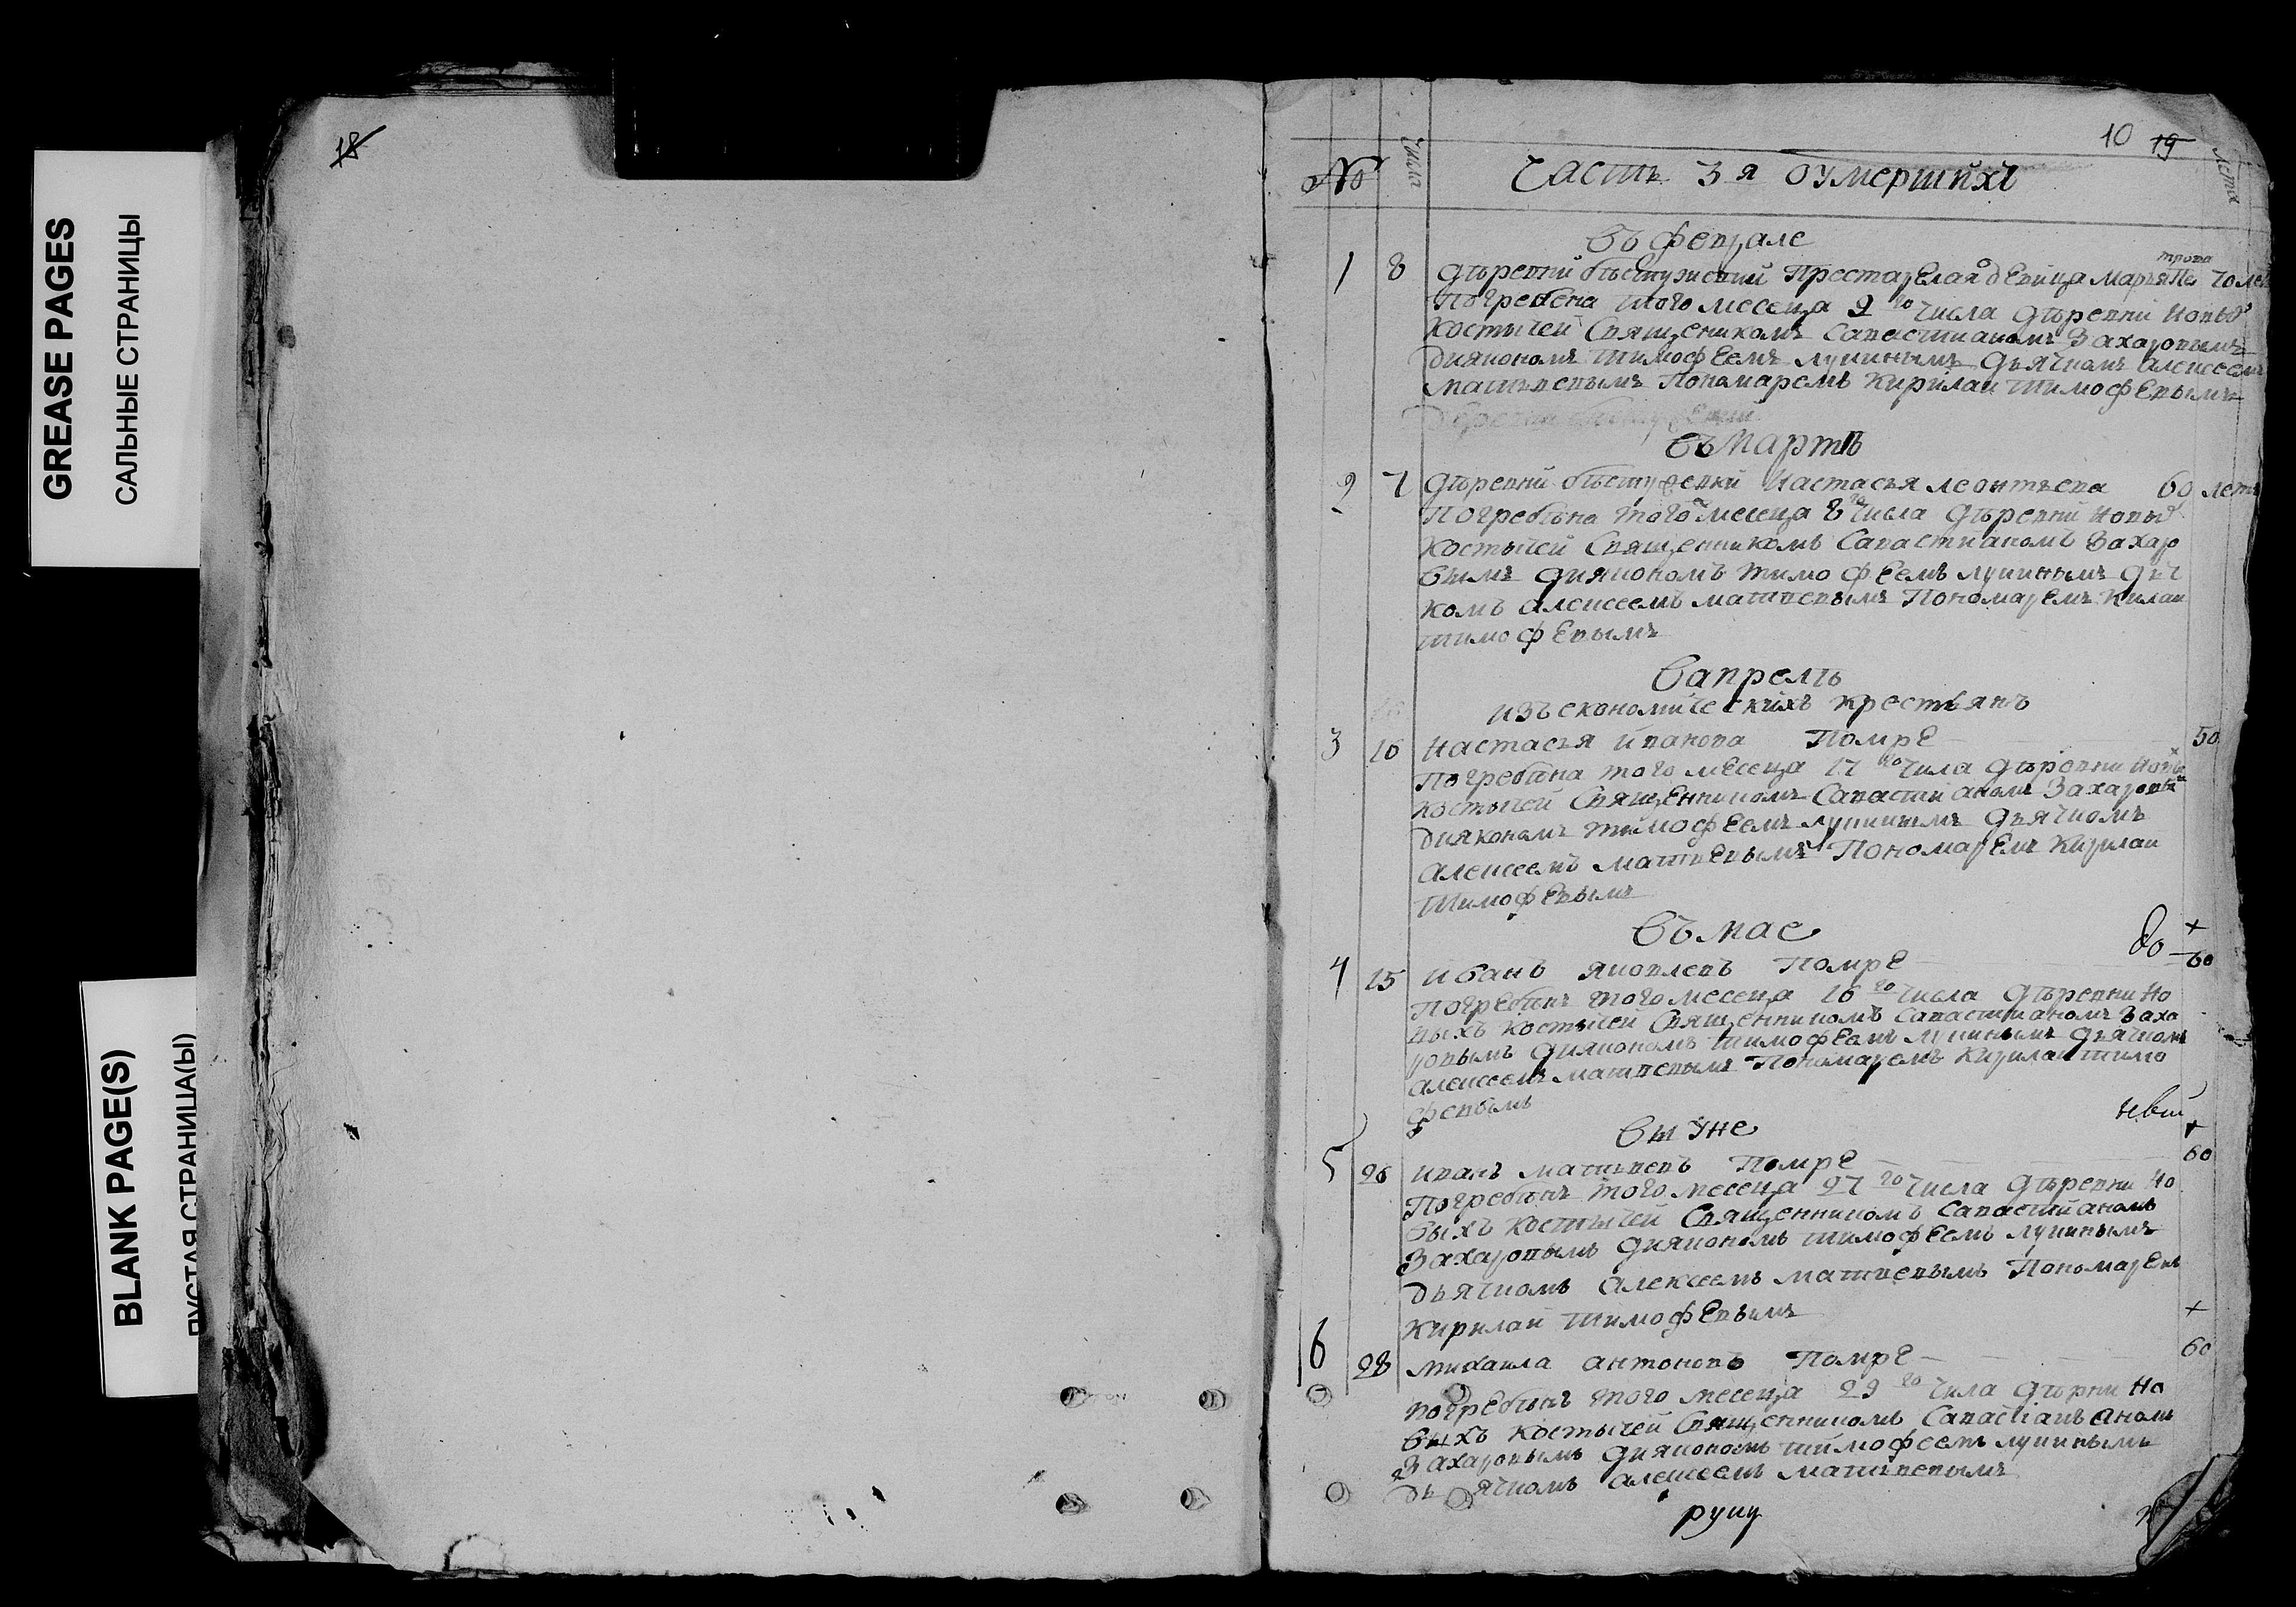 GREASE PAGES
САЛЬНЫЕ СТРАНИЦЫ
BLANK PAGE(S)
ПУСТАЯ СТРАНИЦА(Ы)
18
10 19
№ числа Часть 3я оумершихъ лета
Въ феврале
1 8 деревни Престарелая девица Марья Петрова 70 лет
Погребена того месеца 9 го числа деревни новых
костычей Священикомъ Савастианомъ Захаровымъ
дияконом Тимофеемъ Лупинымъ дьячком алексеем
Матвевымъ Пономаремъ Кирилаи Тимофевымъ
Въ Мартѣ
2 7 деревни Настасья леонтьева 60 летъ
Погребѣна того месеца 8 го числа деревни новых
костычей Священником Савастианомъ Захаро
вымъ дияконом Тимофеемъ лупинымъ дьч
комъ алексеемъ матвевымъ Пономаремъ Килаи
тимофевымъ
Вапрелѣ
изъ економическихъ крестьянъ
3 16 Настасья Иванова Помре 50
Погребѣна того месеца 17 го чила деревни Новых
костычей Священником Савастианом Захаровым
дияконом тимофеемъ лупинымъ дьячкомъ
алексеемъ матвевымъ Пономаремъ Кирилаи
Тимофевымъ
Въ мае
4 15 Иванъ яковлевъ Помре до 60
Погребѣнъ того месеца 16 го числа деревни Но
выхъ костычей Священником Савастианомъ Заха
ровымъ дияконом Тимофеемъ Лупинымъ дьячком
алексеемъ матвевымъ Пономаремъ Кирилаи тимо
февымъ
Въ июне
5 26 иванъ матвевъ Помре 60
Погребѣнъ того месеца 27 го числа деревни Но
выхъ костычей Священником Савастианомъ
Захаровымъ дияконом тимофеемъ лупинымъ
дьячком алексеемъ матвевымъ Пономаремъ
Кирилаи тимофевымъ
6 28 михаила антоновъ Помре 60
погребѣнъ того месеца 29 го чила деврни Но
выхъ костычей Священником
Захаровымъ дияконом тимофеем лупинымъ
дьячком алексеем матвевымъ
руку